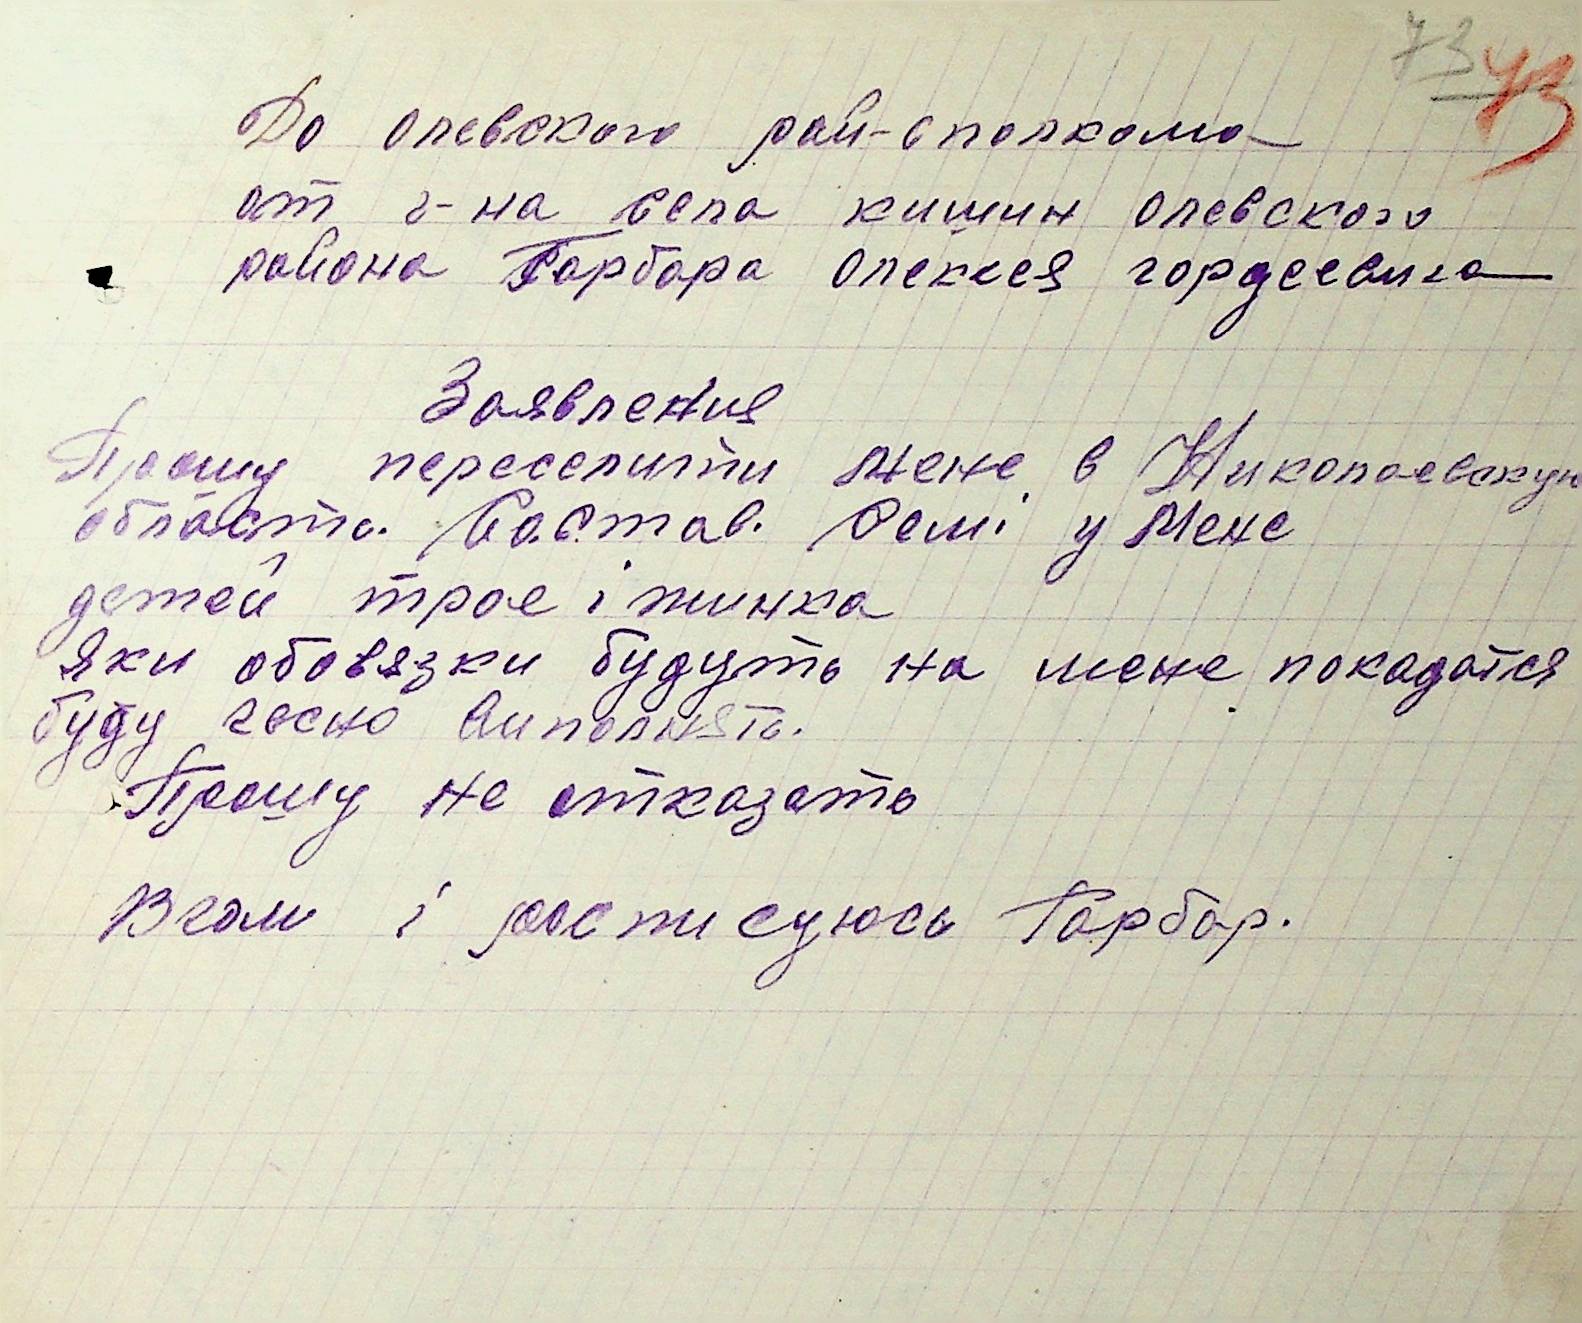 73 73
До олевского рай-сполкома
от г-на села кишин олевского
района Гарбара Олексея гордеевича
Заявления
Прошу переселити Мене в Николаевскую
область. Состав. Семі у Мене
детей трое і жинка
яки обовязки будуть на мене покадатся
буду чесно виполнять.
Прошу не отказать
В чом і росписуюсь Гарбар.